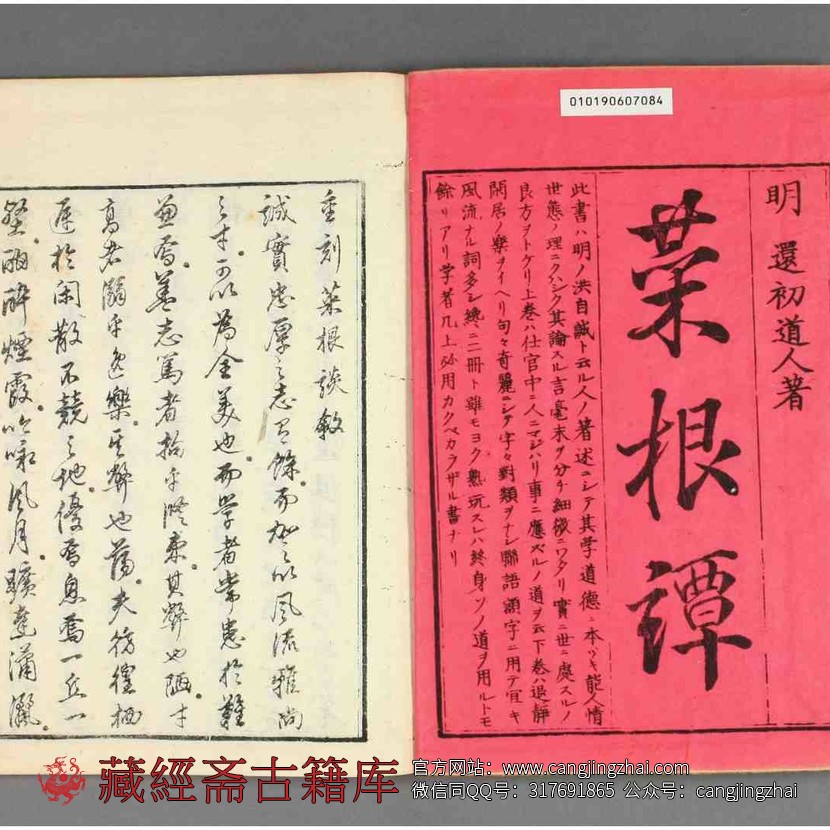 010190607084
明 還初道人著
菜根譚
此書ハ明ノ洪自誠ト云ル人ノ著述ニシテ其学道德ニ本ヅキ能人情
世態ノ理ニクハシク其論スル言毫末ヲ分チ細微ニワタリ實ニ世ニ處スルノ
良方ヲトケリ上巻ハ仕官中ニ人ニマジハリ事ニ應ズルノ道ヲ云下巻ハ退静
閑居ノ樂ヲイヘリ句々奇麗ニシテ字々對類ヲナシ聯語額字ニ用テ宜キ
風流ナル詞多シ纔ニ二冊ト雖モヨク熟玩スレハ終身ソノ道ヲ用ルトモ
餘リアリ学者几上必用カクベカラザル書ナリ
重刻菜根談敘
誠實忠厚之志有餘而加之以風流雅尚
之才可以為全美也而学者常患於難
兼焉蓋志篤者拾乎

其弊也陋才
高者
乎逸樂其弊也蕩夫彷徨栖
遲於閑散不競之地優焉息焉一丘一
壑酒酔煙霞吟詠風月曠達瀟灑
藏經斋古籍库
官方网站：www.cangjingzhai.com
微信同QQ号：317691865 公众号：cangjingzhai